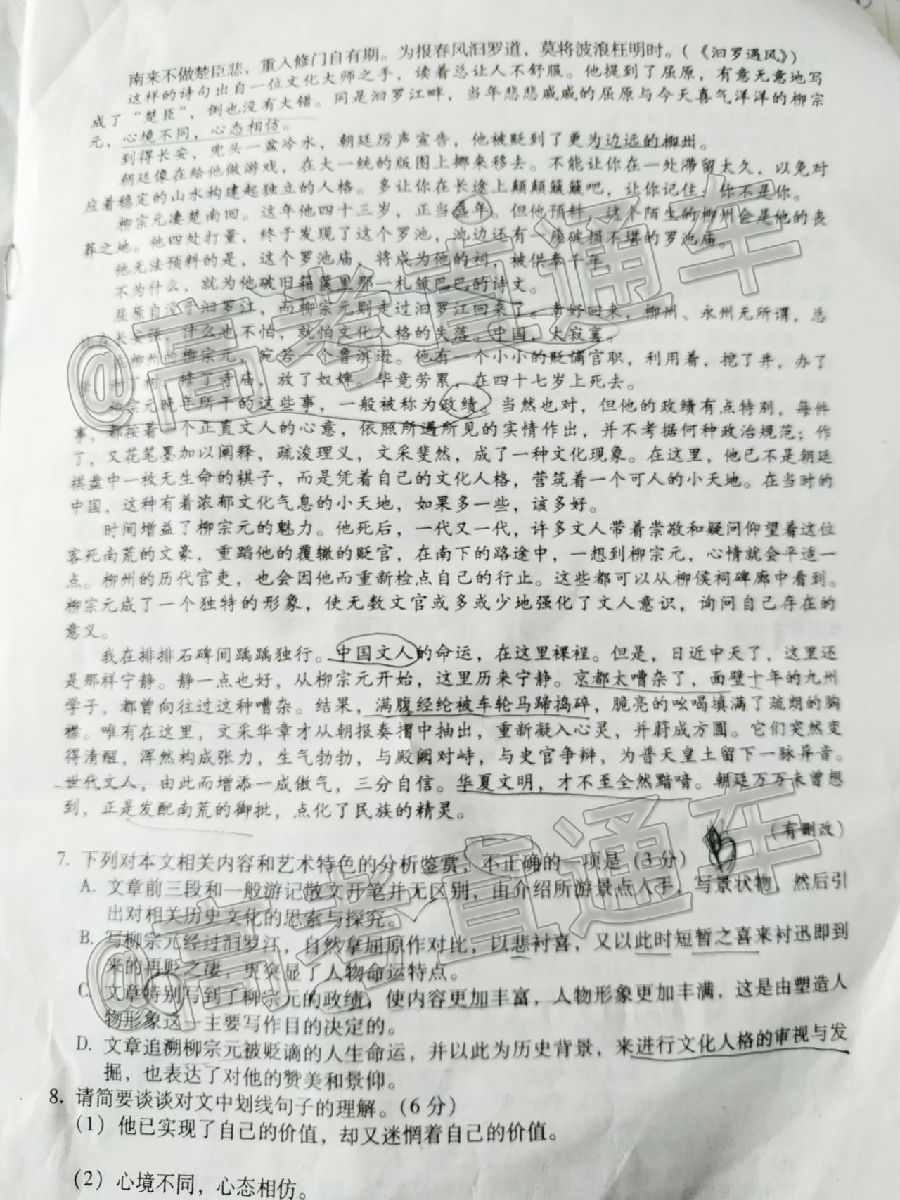 南来不做楚臣悲，重入修门自有期。为报春风汨罗道，莫将波浪枉明时。（《汨罗遇风》）
这样的诗句出自一位文化大师之手，读着总让人不舒服。他提到了屈原，有意无意地写
成了“楚臣”，倒也没有大错。同是汨罗江畔，当年悲悲戚戚的屈原与今天喜气洋洋的柳宗
元，心境不同，心态相仿。
到得长安，兜头一盆冷水，朝廷厉声宣告，他被贬到了更为边远的柳州。
朝廷像在给他做游戏，在大一统的版图上挪来移去。不能让你在一处滞留太久，以免对
应着稳定的山水构建起独立的人格。多让你在长途上颠颠簸簸吧，让你记住，你不是你。
柳宗元凄楚南回。这年他四十三岁，正当盛年。但他预料，这个陌生的柳州会是他的丧
葬之地。他四处打量，终于发现了这个罗池，池边还有一座破损不堪的罗池庙。
他无法预料的是，这个罗池庙，将成为他的祠，被供奉千年。
不为什么，就为他破旧箱箧里那一札皱巴巴的诗文。
屈原自没于汨罗江，而柳宗元则走过汨罗江回来了。幸好回来，柳州、永州无所谓，总
长安强，什么也不怕，就怕文化人格的失落。中国，太寂寞。
在柳州的柳宗元，宛若一个鲁滨逊。他有一个小小的贬谪官职，利用着，挖了井，办了
树，修了寺庙，放了奴婢。毕竟劳累，在四十七岁上死去。
柳宗元晚年所干的这些事，一般被称为政绩。当然也对，但他的政绩有点特别，每件
事，都按着一个正直文人的心意，依照所遇所见的实情作出，并不考据何种政治规范；作
了，又花笔墨加以阐释，疏浚理义，文采斐然，成了一种文化现象。在这里，他已不是朝廷
棋盘中一枚无生命的棋子，而是凭着自己的文化人格，营筑着一个可人的小天地。在当时的
中国，这种有着浓郁文化气息的小天地，如果多一些，该多好。
时间增益了柳宗元的魅力。他死后，一代又一代，许多文人带着崇敬和疑问仰望着这位
客死南荒的文豪，重蹈他的覆辙的贬官，在南下的路途中，一想到柳宗元，心情就会平适一
点。柳州的历代官吏，也会因他而重新检点自己的行止。这些都可以从柳侯祠碑廊中看到。
柳宗元成了一个独特的形象，使无数文官或多或少地强化了文人意识，询问自己存在的
意义。
我在排排石碑间踽踽独行。中国文人的命运，在这里裸裎。但是，日近中天了，这里还
是那样宁静。静一点也好，从柳宗元开始，这里历来宁静。京都太嘈杂了，面壁十年的九州
学子，都曾向往过这种嘈杂。结果，满腹经纶被车轮马蹄捣碎，脆亮的吆喝填满了疏朗的胸
襟。唯有在这里，文采华章才从朝报奏摺中抽出，重新凝入心灵，并蔚成方圆。它们突然变
得清醒，浑然构成张力，生气勃勃，与殿阙对峙，与史官争辩，为普天皇土留下一脉异音。
世代文人，由此而增添一成傲气，三分自信。华夏文明，才不至全然黯喑。朝廷万万未曾想
到，正是发配南荒的御批，点化了民族的精灵。
（有删改）
7. 下列对本文相关内容和艺术特色的分析鉴赏，不正确的一项是（3分）
A. 文章前三段和一般游记散文开笔并无区别，由介绍所游景点入手，写景状物，然后引
出对相关历史文化的思索与探究。
B. 写柳宗元经过汨罗江，自然拿屈原作对比，以悲衬喜，又以此时短暂之喜来衬迅即到
来的再贬之凄，更突显了人物命运特点。
C. 文章特别写到了柳宗元的政绩，使内容更加丰富，人物形象更加丰满，这是由塑造人
物形象这一主要写作目的决定的。
D. 文章追溯柳宗元被贬谪的人生命运，并以此为历史背景，来进行文化人格的审视与发
掘，也表达了对他的赞美和景仰。
8. 请简要谈谈对文中划线句子的理解。（6分）
（1）他已实现了自己的价值，却又迷惘着自己的价值。
（2）心境不同，心态相仿。
@高考直通车
@高考直通车